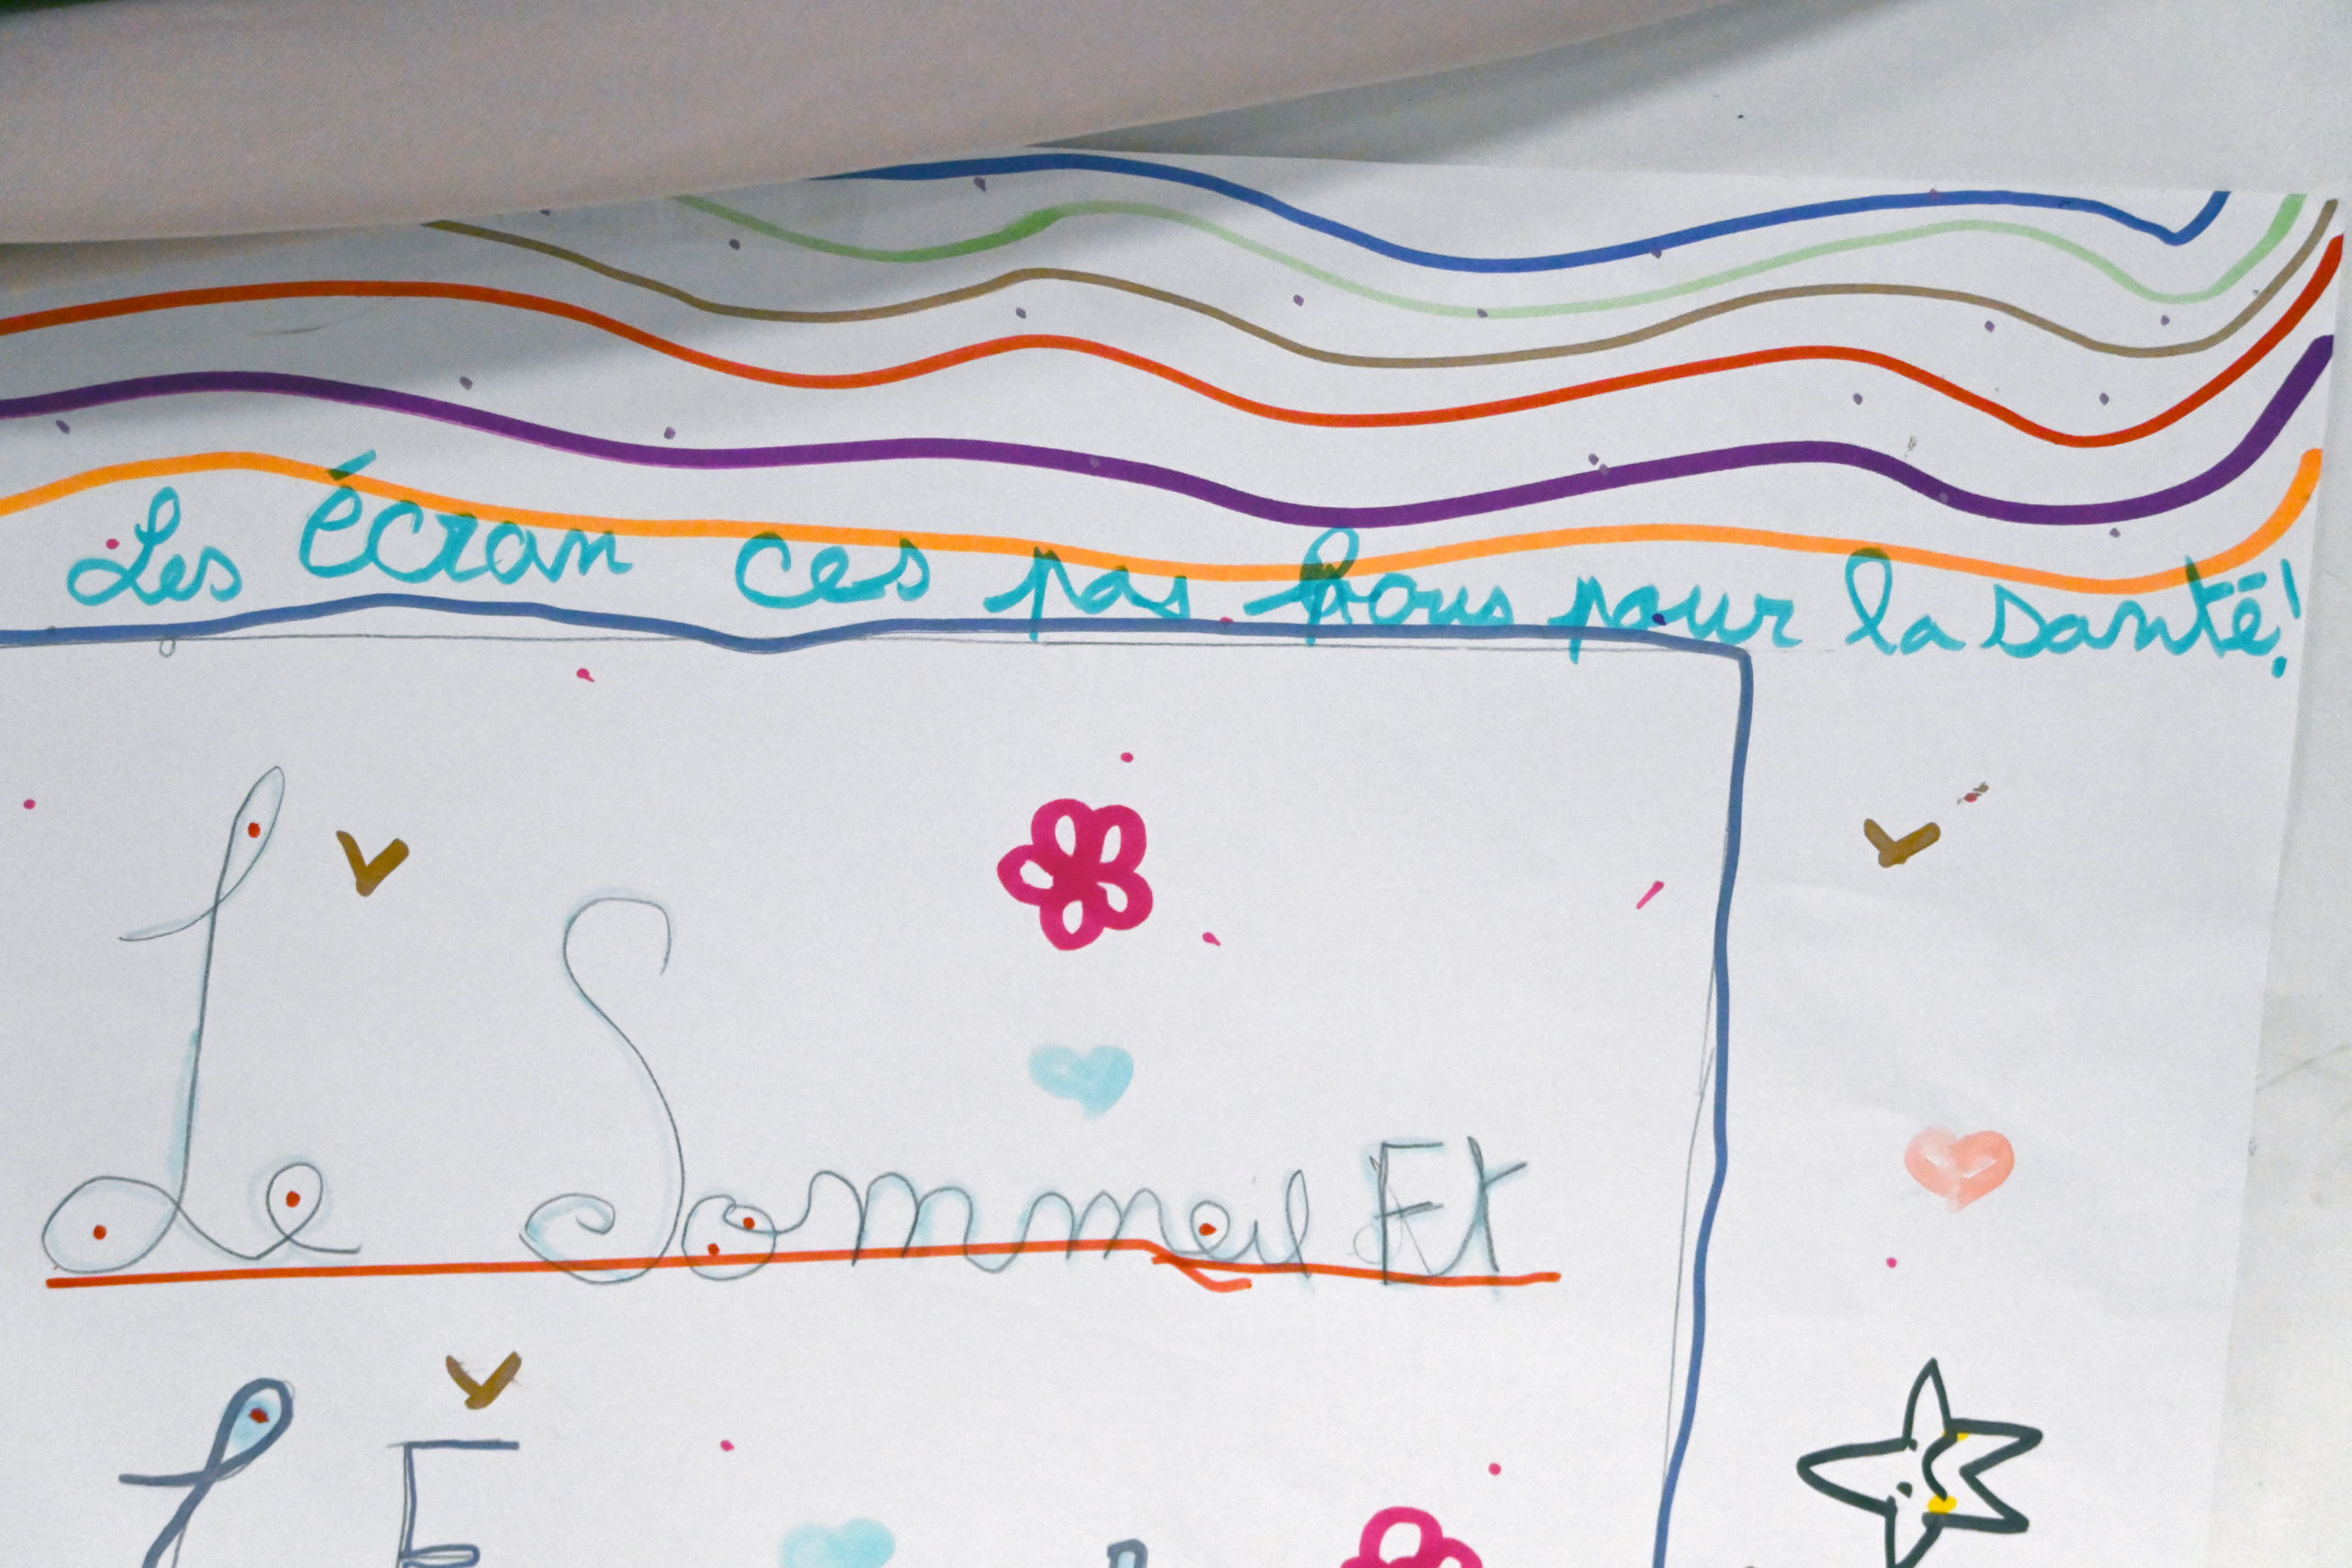 Les écran ces pas bons pour la santé!
Le Sommeil Et